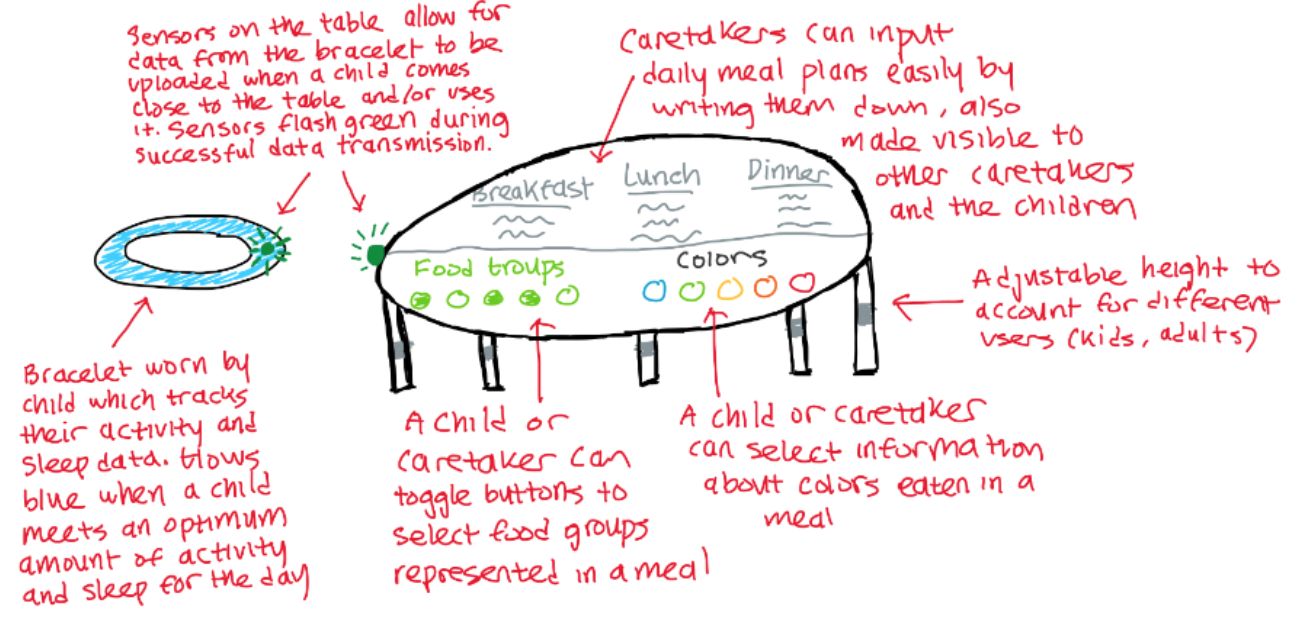 Sensors on the table allow for
data from the bracelet to be
uploaded when a child comes
close to the table and/or uses
it. Sensors flash green during
successful data transmission.
Caretakers can input
daily meal plans easily by
writing them down, also
made visible to
other caretakers
and the children
Breakfast
Lunch
Dinner
Food Groups
Colors
Adjustable height to
account for different
users (kids, adults)
Bracelet worn by
child which tracks
their activity and
sleep data. Glows
blue when a child
meets an optimum
amount of activity
and sleep for the day
A child or
caretaker can
toggle buttons to
select food groups
represented in a meal
A child or caretaker
can select information
about colors eaten in a
meal